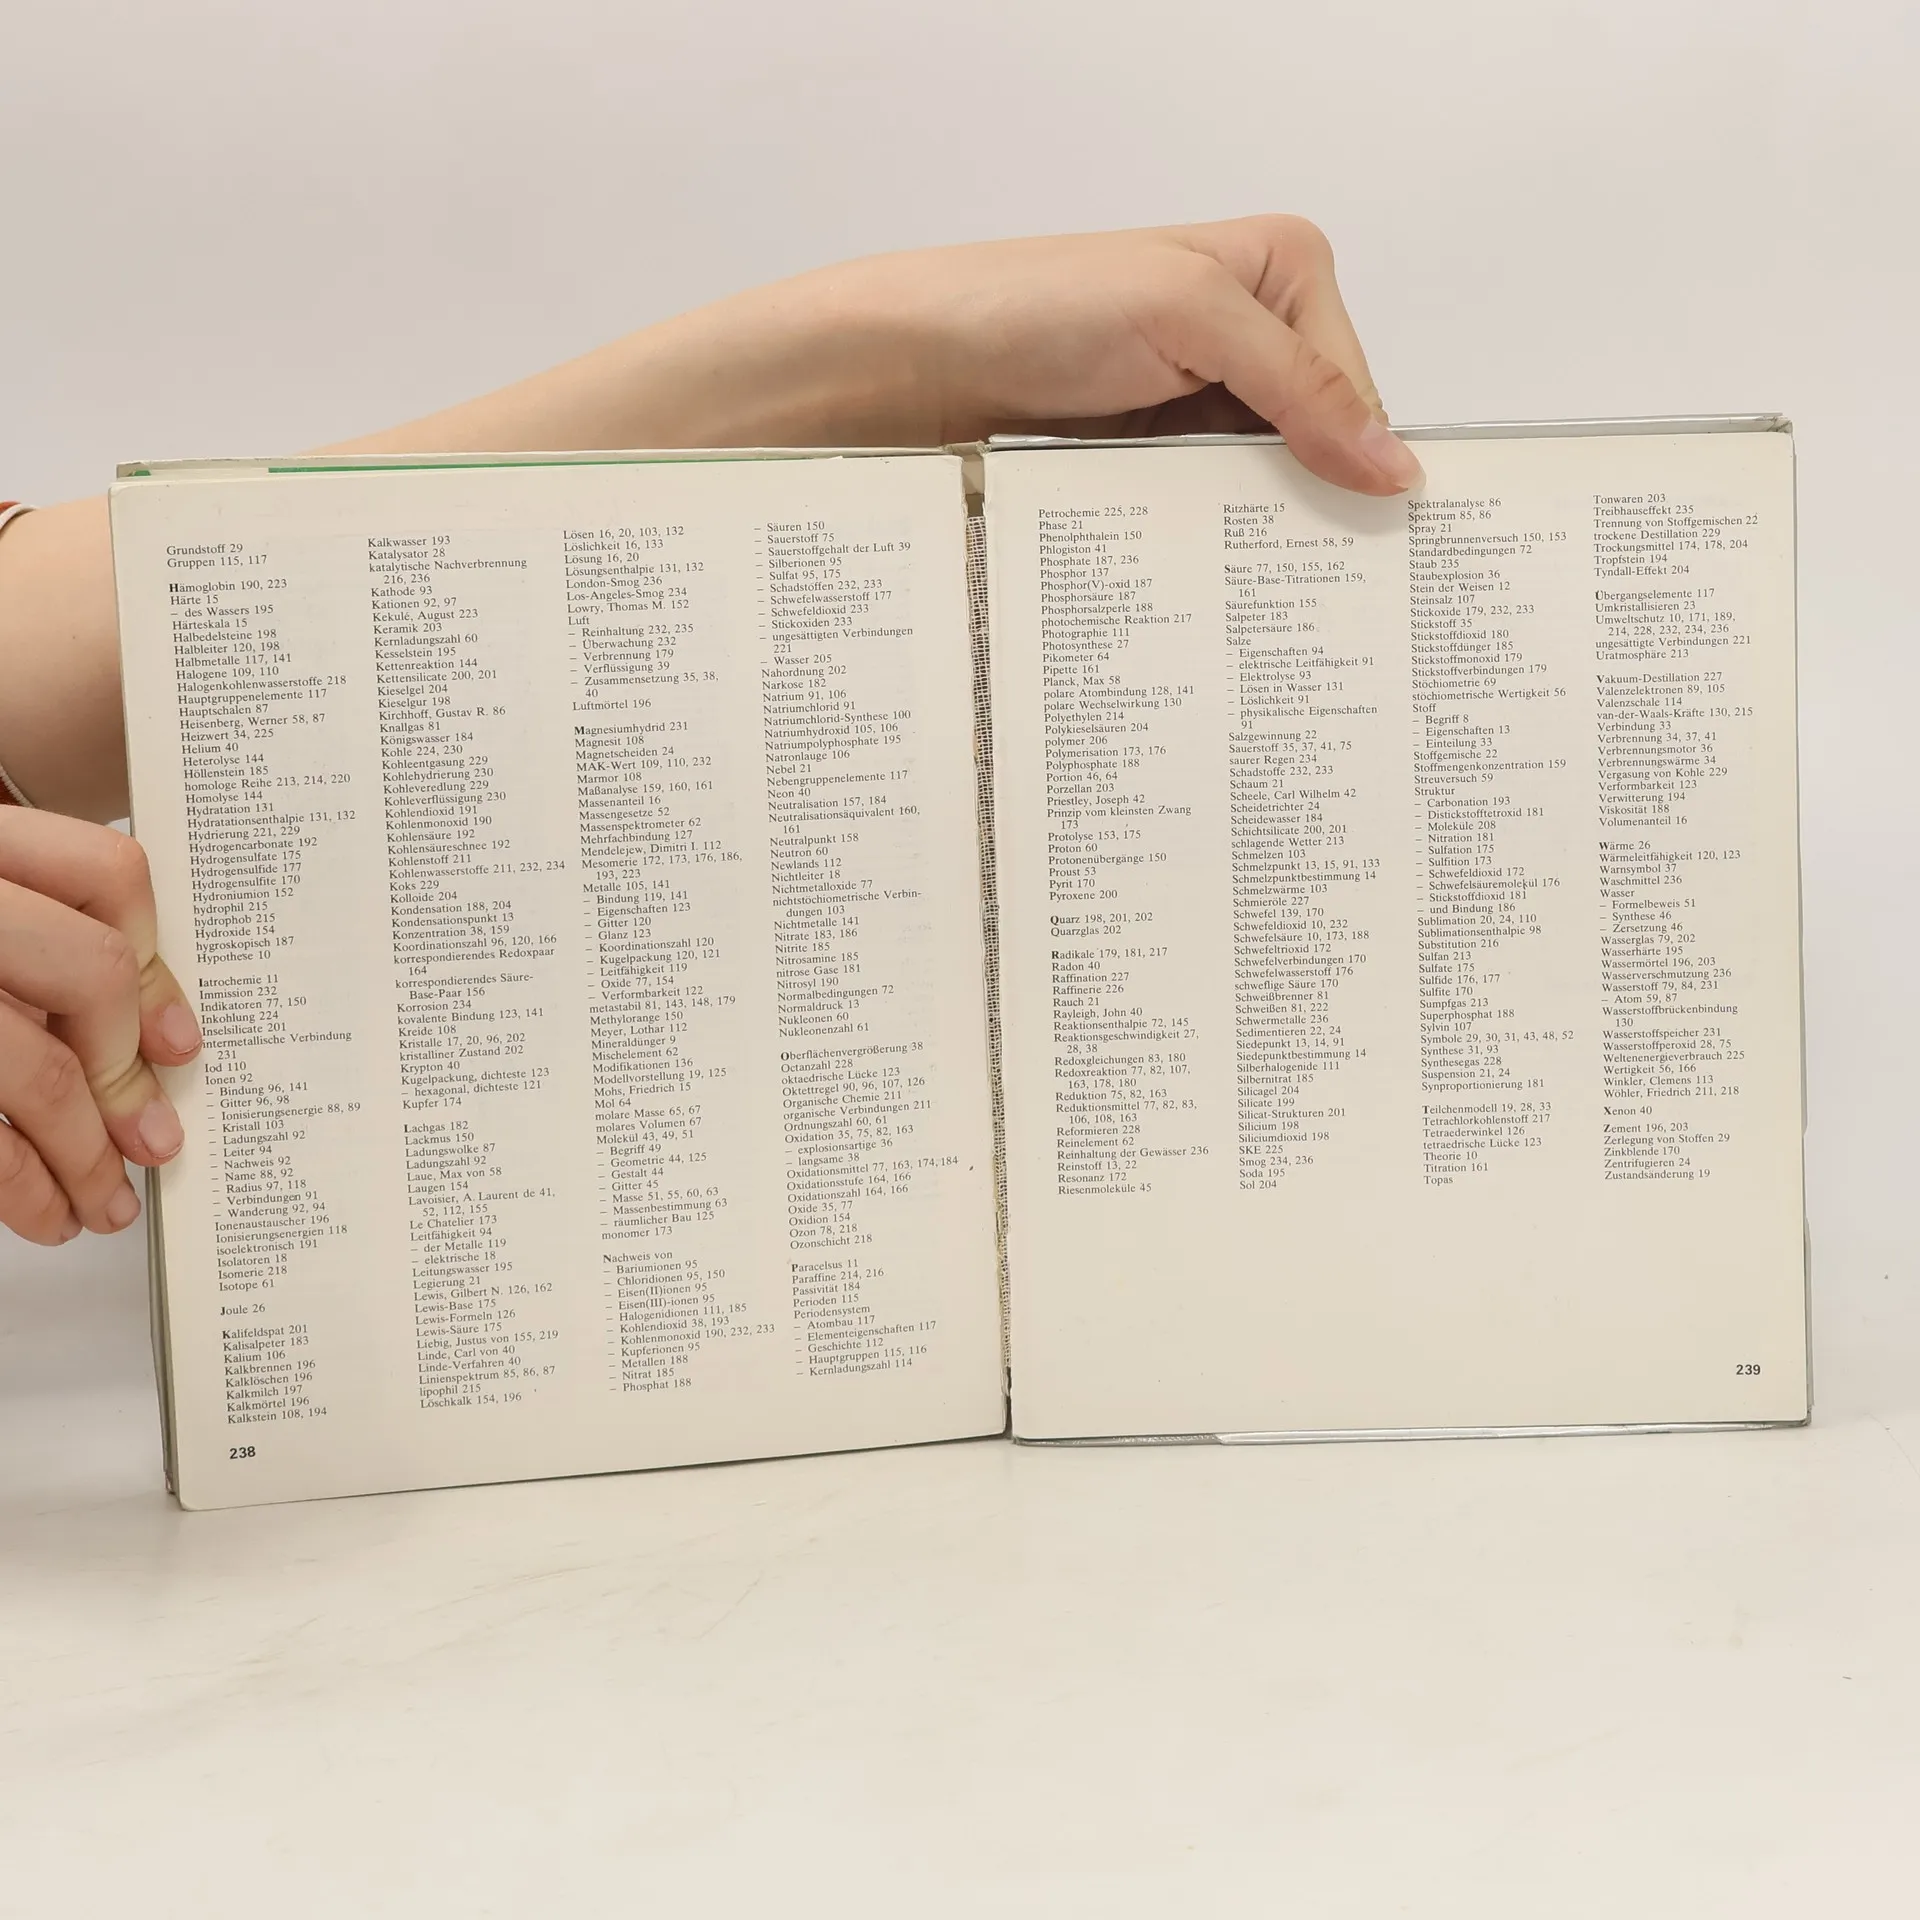 Grundstoff 29
Gruppen 115, 117
Hämoglobin 190, 223
Härte 15
– des Wassers 195
Härteskala 15
Halbedelsteine 198
Halbleiter 120, 198
Halbmetalle 117, 141
Halogene 109, 110
Halogenkohlenwasserstoffe 218
Hauptgruppenelemente 117
Hauptschalen 87
Heisenberg, Werner 58, 87
Heizwert 34, 225
Helium 40
Heterolyse 144
Höllenstein 185
homologe Reihe 213, 214, 220
Homolyse 144
Hydratation 131
Hydratationsenthalpie 131, 132
Hydrierung 221, 229
Hydrogencarbonate 192
Hydrogensulfate 175
Hydrogensulfide 177
Hydrogensulfite 170
Hydroniumion 152
hydrophil 215
hydrophob 215
Hydroxide 154
hygroskopisch 187
Hypothese 10
Iatrochemie 11
Immission 232
Indikatoren 77, 150
Inkohlung 224
Inselsilicate 201
intermetallische Verbindung
231
Iod 110
Ionen 92
– Bindung 96, 141
– Gitter 96, 98
– Ionisierungsenergie 88, 89
– Kristall 103
– Ladungszahl 92
– Leiter 94
– Nachweis 92
– Name 88, 92
– Radius 97, 118
– Verbindungen 91
– Wanderung 92, 94
Ionenaustauscher 196
Ionisierungsenergien 118
isoelektronisch 191
Isolatoren 18
Isomerie 218
Isotope 61
Joule 26
Kalifeldspat 201
Kalisalpeter 183
Kalium 106
Kalkbrennen 196
Kalklöschen 196
Kalkmilch 197
Kalkmörtel 196
Kalkstein 108, 194
Kalkwasser 193
Katalysator 28
katalytische Nachverbrennung
216, 236
Kathode 93
Kationen 92, 97
Kekulé, August 223
Keramik 203
Kernladungszahl 60
Kesselstein 195
Kettenreaktion 144
Kettensilicate 200, 201
Kieselgel 204
Kieselgur 198
Kirchhoff, Gustav R. 86
Knallgas 81
Königswasser 184
Kohle 224, 230
Kohleentgasung 229
Kohlehydrierung 230
Kohleveredlung 229
Kohleverflüssigung 230
Kohlendioxid 191
Kohlenmonoxid 190
Kohlensäure 192
Kohlensäureschnee 192
Kohlenstoff 211
Kohlenwasserstoffe 211, 232, 234
Koks 229
Kolloide 204
Kondensation 188, 204
Kondensationspunkt 13
Konzentration 38, 159
Koordinationszahl 96, 120, 166
korrespondierendes Redoxpaar
164
korrespondierendes Säure-
Base-Paar 156
Korrosion 234
kovalente Bindung 123, 141
Kreide 108
Kristalle 17, 20, 96, 202
kristalliner Zustand 202
Krypton 40
Kugelpackung, dichteste 123
– hexagonal, dichteste 121
Kupfer 174
Lachgas 182
Lackmus 150
Ladungswolke 87
Ladungszahl 92
Laue, Max von 58
Laugen 154
Lavoisier, A. Laurent de 41,
52, 112, 155
Le Chatelier 173
Leitfähigkeit 94
– der Metalle 119
– elektrische 18
Leitungswasser 195
Legierung 21
Lewis, Gilbert N. 126, 162
Lewis-Base 175
Lewis-Formeln 126
Lewis-Säure 175
Liebig, Justus von 155, 219
Linde, Carl von 40
Linde-Verfahren 40
Linienspektrum 85, 86, 87
lipophil 215
Löschkalk 154, 196
Lösen 16, 20, 103, 132
Löslichkeit 16, 133
Lösung 16, 20
Lösungsenthalpie 131, 132
London-Smog 236
Los-Angeles-Smog 234
Lowry, Thomas M. 152
Luft
– Reinhaltung 232, 235
– Überwachung 232
– Verbrennung 179
– Verflüssigung 39
– Zusammensetzung 35, 38,
40
Luftmörtel 196
Magnesiumhydrid 231
Magnesit 108
Magnetscheiden 24
MAK-Wert 109, 110, 232
Marmor 108
Maßanalyse 159, 160, 161
Massenanteil 16
Massengesetze 52
Massenspektrometer 62
Mehrfachbindung 127
Mendelejew, Dimitri I. 112
Mesomerie 172, 173, 176, 186,
193, 223
Metalle 105, 141
– Bindung 119, 141
– Eigenschaften 123
– Gitter 120
– Glanz 123
– Koordinationszahl 120
– Kugelpackung 120, 121
– Leitfähigkeit 119
– Oxide 77, 154
– Verformbarkeit 122
metastabil 81, 143, 148, 179
Methylorange 150
Meyer, Lothar 112
Mineraldünger 9
Mischelement 62
Modifikationen 136
Modellvorstellung 19, 125
Mohs, Friedrich 15
Mol 64
molare Masse 65, 67
molares Volumen 67
Molekül 43, 49, 51
– Begriff 49
– Geometrie 44, 125
– Gestalt 44
– Gitter 45
– Masse 51, 55, 60, 63
– Massenbestimmung 63
– räumlicher Bau 125
monomer 173
Nachweis von
– Bariumionen 95
– Chloridionen 95, 150
– Eisen(II)ionen 95
– Eisen(III)-ionen 95
– Halogenidionen 111, 185
– Kohlendioxid 38, 193
– Kohlenmonoxid 190, 232, 233
– Kupferionen 95
– Metallen 188
– Nitrat 185
– Phosphat 188
– Säuren 150
– Sauerstoff 75
– Sauerstoffgehalt der Luft 39
– Silberionen 95
– Sulfat 95, 175
– Schadstoffen 232, 233
– Schwefelwasserstoff 177
– Schwefeldioxid 233
– Stickoxiden 233
– ungesättigten Verbindungen
221
– Wasser 205
Nahordnung 202
Narkose 182
Natrium 91, 106
Natriumchlorid 91
Natriumchlorid-Synthese 100
Natriumhydroxid 105, 106
Natriumpolyphosphate 195
Natronlauge 106
Nebel 21
Nebengruppenelemente 117
Neon 40
Neutralisation 157, 184
Neutralisationsäquivalent 160,
161
Neutralpunkt 158
Neutron 60
Newlands 112
Nichtleiter 18
Nichtmetalloxide 77
nichtstöchiometrische Verbin-
dungen 103
Nichtmetalle 141
Nitrate 183, 186
Nitrite 185
Nitrosamine 185
nitrose Gase 181
Nitrosyl 190
Normalbedingungen 72
Normaldruck 13
Nukleonen 60
Nukleonenzahl 61
Oberflächenvergrößerung 38
Octanzahl 228
oktaedrische Lücke 123
Oktettregel 90, 96, 107, 126
Organische Chemie 211
organische Verbindungen 211
Ordnungszahl 60, 61
Oxidation 35, 75, 82, 163
– explosionsartige 36
– langsame 38
Oxidationsmittel 77, 163, 174, 184
Oxidationsstufe 164, 166
Oxidationszahl 164, 166
Oxide 35, 77
Oxidion 154
Ozon 78, 218
Ozonschicht 218
Paracelsus 11
Paraffine 214, 216
Passivität 184
Perioden 115
Periodensystem
– Atombau 117
– Elementeigenschaften 117
– Geschichte 112
– Hauptgruppen 115, 116
– Kernladungszahl 114
238
Petrochemie 225, 228
Phase 21
Phenolphthalein 150
Phlogiston 41
Phosphate 187, 236
Phosphor 137
Phosphor(V)-oxid 187
Phosphorsäure 187
Phosphorsalzperle 188
photochemische Reaktion 217
Photographie 111
Photosynthese 27
Pikometer 64
Pipette 161
Planck, Max 58
polare Atombindung 128, 141
polare Wechselwirkung 130
Polyethylen 214
Polykieselsäuren 204
polymer 206
Polymerisation 173, 176
Polyphosphate 188
Portion 46, 64
Porzellan 203
Priestley, Joseph 42
Prinzip vom kleinsten Zwang
173
Protolyse 153, 175
Proton 60
Protonenübergänge 150
Proust 53
Pyrit 170
Pyroxene 200
Quarz 198, 201, 202
Quarzglas 202
Radikale 179, 181, 217
Radon 40
Raffination 227
Raffinerie 226
Rauch 21
Rayleigh, John 40
Reaktionsenthalpie 72, 145
Reaktionsgeschwindigkeit 27,
28, 38
Redoxgleichungen 83, 180
Redoxreaktion 77, 82, 107,
163, 178, 180
Reduktion 75, 82, 163
Reduktionsmittel 77, 82, 83,
106, 108, 163
Reformieren 228
Reinelement 62
Reinhaltung der Gewässer 236
Reinstoff 13, 22
Resonanz 172
Riesenmoleküle 45
Ritzhärte 15
Rosten 38
Ruß 216
Rutherford, Ernest 58, 59
Säure 77, 150, 155, 162
Säure-Base-Titrationen 159,
161
Säurefunktion 155
Salpeter 183
Salpetersäure 186
Salze
– Eigenschaften 94
– elektrische Leitfähigkeit 91
– Elektrolyse 93
– Lösen in Wasser 131
– Löslichkeit 91
– physikalische Eigenschaften
91
Salzgewinnung 22
Sauerstoff 35, 37, 41, 75
saurer Regen 234
Schadstoffe 232, 233
Schaum 21
Scheele, Carl Wilhelm 42
Scheidetrichter 24
Scheidewasser 184
Schichtsilicate 200, 201
schlagende Wetter 213
Schmelzen 103
Schmelzpunkt 13, 15, 91, 133
Schmelzpunktbestimmung 14
Schmelzwärme 103
Schmieröle 227
Schwefel 139, 170
Schwefeldioxid 10, 232
Schwefelsäure 10, 173, 188
Schwefeltrioxid 172
Schwefelverbindungen 170
Schwefelwasserstoff 176
schweflige Säure 170
Schweißbrenner 81
Schweißen 81, 222
Schwermetalle 236
Sedimentieren 22, 24
Siedepunkt 13, 14, 91
Siedepunktbestimmung 14
Silberhalogenide 111
Silbernitrat 185
Silicagel 204
Silicate 199
Silicat-Strukturen 201
Silicium 198
Siliciumdioxid 198
SKE 225
Smog 234, 236
Soda 195
Sol 204
Spektralanalyse 86
Spektrum 85, 86
Spray 21
Springbrunnenversuch 150, 153
Standardbedingungen 72
Staub 235
Staubexplosion 36
Stein der Weisen 12
Steinsalz 107
Stickoxide 179, 232, 233
Stickstoff 35
Stickstoffdioxid 180
Stickstoffdünger 185
Stickstoffmonoxid 179
Stickstoffverbindungen 179
Stöchiometrie 69
stöchiometrische Wertigkeit 56
Stoff
– Begriff 8
– Eigenschaften 13
– Einteilung 33
Stoffgemische 22
Stoffmengenkonzentration 159
Streuversuch 59
Struktur
– Carbonation 193
– Distickstofftetroxid 181
– Moleküle 208
– Nitration 181
– Sulfation 175
– Sulfition 173
– Schwefeldioxid 172
– Schwefelsäuremolekül 176
– Stickstoffdioxid 181
– und Bindung 186
Sublimation 20, 24, 110
Sublimationsenthalpie 98
Substitution 216
Sulfan 213
Sulfate 175
Sulfide 176, 177
Sulfite 170
Sumpfgas 213
Superphosphat 188
Sylvin 107
Symbole 29, 30, 31, 43, 48, 52
Synthese 31, 93
Synthesegas 228
Suspension 21, 24
Synproportionierung 181
Teilchenmodell 19, 28, 33
Tetrachlorkohlenstoff 217
Tetraederwinkel 126
tetraedrische Lücke 123
Theorie 10
Titration 161
Topas
Tonwaren 203
Treibhauseffekt 235
Trennung von Stoffgemischen 22
trockene Destillation 229
Trockungsmittel 174, 178, 204
Tropfstein 194
Tyndall-Effekt 204
Übergangselemente 117
Umkristallisieren 23
Umweltschutz 10, 171, 189,
214, 228, 232, 234, 236
ungesättigte Verbindungen 221
Uratmosphäre 213
Vakuum-Destillation 227
Valenzelektronen 89, 105
Valenzschale 114
van-der-Waals-Kräfte 130, 215
Verbindung 33
Verbrennung 34, 37, 41
Verbrennungsmotor 36
Verbrennungswärme 34
Vergasung von Kohle 229
Verformbarkeit 123
Verwitterung 194
Viskosität 188
Volumenanteil 16
Wärme 26
Wärmeleitfähigkeit 120, 123
Warnsymbol 37
Waschmittel 236
Wasser
– Formelbeweis 51
– Synthese 46
– Zersetzung 46
Wasserglas 79, 202
Wasserhärte 195
Wassermörtel 196, 203
Wasserverschmutzung 236
Wasserstoff 79, 84, 231
– Atom 59, 87
Wasserstoffbrückenbindung
130
Wasserstoffspeicher 231
Wasserstoffperoxid 28, 75
Weltenenergieverbrauch 225
Wertigkeit 56, 166
Winkler, Clemens 113
Wöhler, Friedrich 211, 218
Xenon 40
Zement 196, 203
Zerlegung von Stoffen 29
Zinkblende 170
Zentrifugieren 24
Zustandsänderung 19
239